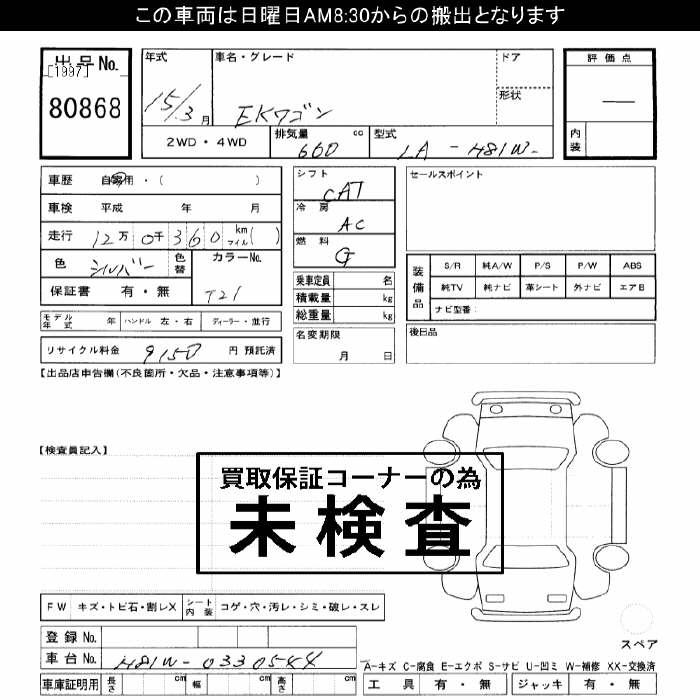 この車両は日曜日AM8:30からの搬出となります
出品No.
[1997]
80868
年式 車名・グレード ドア
15/3月 EKワゴン
形状
2WD・4WD 排気量 cc 型式
660 LA - H81W-
評価点
—
内装
車歴 自家用・( )
車検 平成 年 月
走行 12万 0千 360 km マイル( )
色 シルバー 色替 カラーNo.
T21
保証書 有・無
モデル年式 年 ハンドル 左・右 ディーラー・並行
リサイクル料金 9150 円 預託済
シフト CAT
冷房 AC
燃料 G
乗車定員 名
積載量 kg
総重量 kg
名変期限
月 日
セールスポイント
装備品
S/R 純A/W P/S P/W ABS
純TV 純ナビ 革シート 外ナビ エアB
ナビ型番:
後日品
【出品店申告欄(不良箇所・欠品・注意事項等)】
【検査員記入】
買取保証コーナーの為
未検査
FW キズ・トビ石・割レX シート内装 コゲ・穴・汚レ・シミ・破レ・スレ
登録No.
車台No. H81W-0330544
車庫証明用 長さ cm 幅 cm 高さ cm
スペア
A-キズ C-腐食 E-エクボ S-サビ U-凹ミ W-補修 XX-交換済
工具 有・無 ジャッキ 有・無